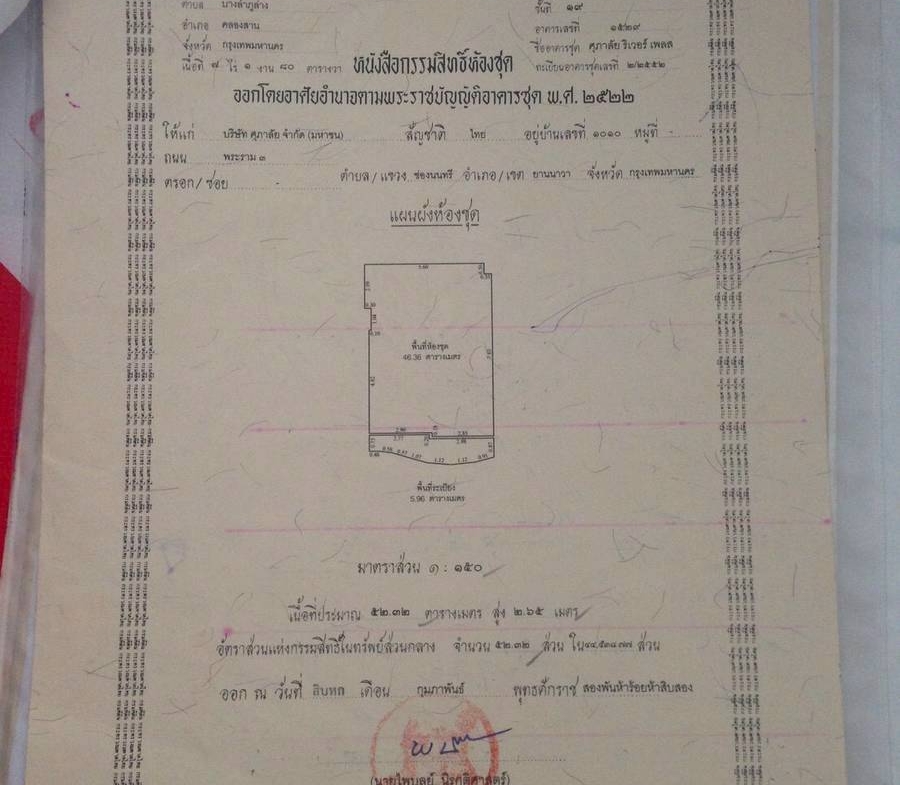 ตำบล บางลำภูล่าง
ชั้นที่ ๑๙
อำเภอ คลองสาน
อาคารเลขที่ ๑๕๒๙
จังหวัด กรุงเทพมหานคร
ชื่ออาคารชุด ศุภาลัย ริเวอร์ เพลส
เนื้อที่ ๗ ไร่ ๑ งาน ๘๐ ตารางวา
ทะเบียนอาคารชุดเลขที่ ๒/๒๕๕๒
หนังสือกรรมสิทธิ์ห้องชุด
ออกโดยอาศัยอำนาจตามพระราชบัญญัติอาคารชุด พ.ศ. ๒๕๒๒
ให้แก่ บริษัท ศุภาลัย จำกัด (มหาชน) สัญชาติ ไทย อยู่บ้านเลขที่ ๑๐๑๐ หมู่ที่ -
ถนน พระราม ๓
ตรอก/ซอย - ตำบล/แขวง ช่องนนทรี อำเภอ/เขต ยานนาวา จังหวัด กรุงเทพมหานคร
แผนผังห้องชุด
พื้นที่ห้องชุด
46.36 ตารางเมตร
พื้นที่ระเบียง
5.96 ตารางเมตร
มาตราส่วน ๑ : ๑๕๐
เนื้อที่ประมาณ ๕๒.๓๒ ตารางเมตร สูง ๒.๖๕ เมตร
อัตราส่วนแห่งกรรมสิทธิ์ในทรัพย์ส่วนกลาง จำนวน ๕๒.๓๒ ส่วน ใน ๔๔,๕๓๘.๗๗ ส่วน
ออก ณ วันที่ สิบหก เดือน กุมภาพันธ์ พุทธศักราช สองพันห้าร้อยห้าสิบสอง
(นายไพบูลย์ นิรุกติศาสตร์)